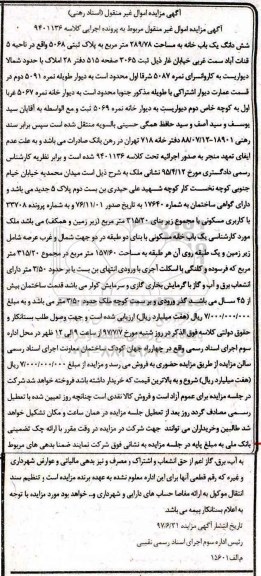 آگهی مزایده اموال غیر منقول (اسناد رهنی)
آگهی مزایده اموال غیر منقول مربوط به پرونده اجرایی کلاسه ۹۴۰۱۱۳۶
شش دانگ یک باب خانه به مساحت ۲۸۹/۷۸ متر مربع به پلاک ثبتی ۵۰۶۸ واقع در ناحیه ۵
قنات آباد سمت غربی خیابان غار ذیل ثبت ۳۰۶۵ صفحه ۵۱۵ دفتر ۲۸ املاک با حدود شمالا
دیواریست به کاروانسرای نمره ۵۰۸۷ شرقا اول محدود است به دیوار طویله نمره ۵۰۹۱ دوم در
قسمت عمارت دیوار اشتراکی با طویله مذکور جنوبا محدود است به دیوار خانه نمره ۵۰۶۷ غربا
اول به کوچه خاص دوم دیواریست به دیوار خانه نمره ۵۰۶۹ ثبت و مع الواسطه به آقایان سید
یوسف و سید آصف و سید حافظ همگی حسینی بالسویه منتقل شده است سپس برابر سند
رهنی ۱۸۹۰۱-۸۸/۰۷/۱۲ دفتر خانه ۷۱۸ تهران در رهن بانک صادرات می باشد و به علت عدم
ایفای تعهد منجر به صدور اجرائیه تحت کلاسه ۹۴۰۱۱۳۶ شده است و برابر نظریه کارشناس
رسمی دادگستری مورخ ۹۵/۴/۱۲ نشانی ملک به شرح ذیل است میدان محمدیه خیابان خیام
جنوبی کوچه نخست کار کوچه شهید علی حیدری بن بست دوم پلاک ۵ جدید می باشد و
دارای گواهی ساختمان به شماره ۱۷۶۴۰ به تاریخ صدور ۷۶/۱۱/۰۱ و به شماره پرونده ۳۳۷۰۸
با کاربری مسکونی با مجموع زیر بنای ۳۱۵/۲۰ متر مربع (زیر زمین و همکف) می باشد ملک
مورد کارشناسی یک باب خانه مسکونی با بنای دو طبقه در دو جهت شمال و غرب عرصه شامل
زیر زمین و یک طبقه روی آن هر طبقه به مساحت ۱۵۷/۶۰ متر مربع در مجموع ۳۱۵/۲۰ متر
مربع که فرسوده و کلنگی با اسکلت آجری با ورودی انتهای بن بست با بر حدود ۳/۵۰ متر دارای
انشعاب برق و آب و گاز با گرمایش بخاری گازی و سرمایش کولر می باشد قدمت ساختمان بیش
از ۴۵ سال می باشد گذر ورودی و بر سمت کوچه ملک حدود ۳/۵۰ متر می باشد و به مبلغ
۷/۰۰۰/۰۰۰/۰۰۰ ریال (هفت میلیارد ریال) و ارزیابی شده است و جهت وصول طلب بستانکار و
حقوق دولتی کلاسه فوق الذکر در روز شنبه مورخ ۹۷/۷/۷ از ساعت ۹ الی ۱۲ ظهر در محل اداره
سوم اجرای اسناد رسمی واقع در چهارراه جهان کودک ساختمان معاونت اجرای اسناد رسمی
سالن مزایده از طریق مزایده حضوری به فروش می رسد و مزایده از مبلغ ۷/۰۰۰/۰۰۰/۰۰۰ ریال
(هفت میلیارد ریال) شروع و به بالاترین قیمت که خریدار داشته باشد فروخته خواهد شد شرکت
در جلسه مزایده برای عموم آزاد است و فروش کالا نقدی است چنانچه روز تعیین شده با تعطیل
رسمی مصادف گردد روز بعد از تعطیل جلسه مزایده در همان ساعت و مکان تشکیل خواهد
شد طالبین و خریداران می توانند جهت شرکت در مزایده در وقت مقرر با ارائه چک تضمینی
بانک ملی به مبلغ پایه در جلسه مزایده به نشانی فوق شرکت نمایند ضمنا بدهی های مربوط
به آب، برق، گاز اعم از حق انشعاب و اشتراک و مصرف و نیز بدهی مالیاتی و عوارض شهرداری
و غیره که رقم قطعی آنها برای این اداره معلوم نشده به عهده برنده مزایده است و تنظیم سند
انتقال موکول به ارائه مفاصا حساب های دارایی و شهرداری و... خواهد بود مورد مزایده با توجه
به اعلام بستانکار بیمه می باشد.
تاریخ انتشار آگهی مزایده ۹۷/۶/۲۱
رئیس اداره سوم اجرای اسناد رسمی نقیبی
م.الف ۱۵۶۰۱